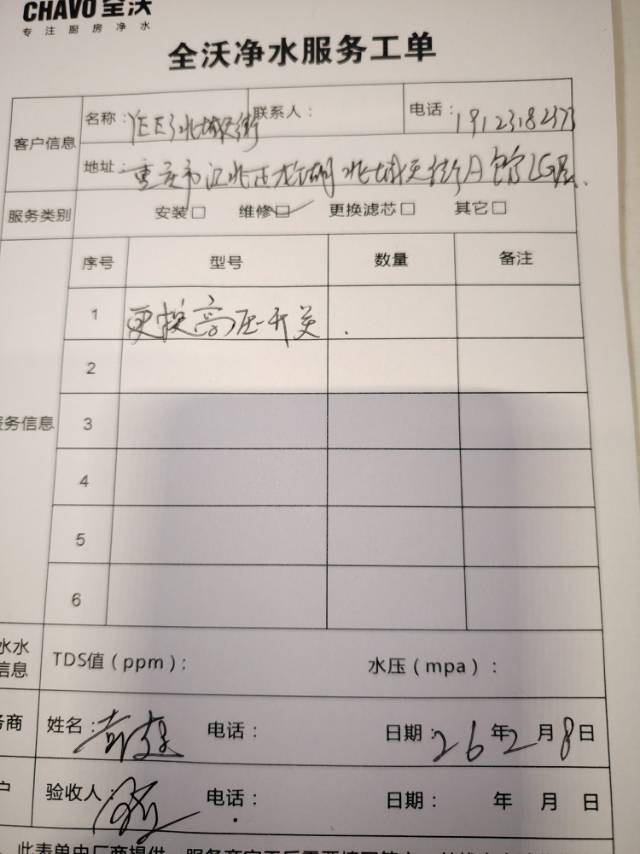 CHAVO 全沃
专注厨房净水
全沃净水服务工单
客户信息
名称： 北城天街 联系人： 电话：1912318237
地址：重庆市江北区龙湖北城天街A馆LG层
服务类别 安装□ 维修□✓ 更换滤芯□ 其它□
服务信息
序号 型号 数量 备注
1 更换高压开关.
2
3
4
5
6
水水
信息
TDS值（ppm）： 水压（mpa）：
务商 姓名： 电话： 日期：26年2月8日
户 验收人： 电话： 日期： 年 月 日